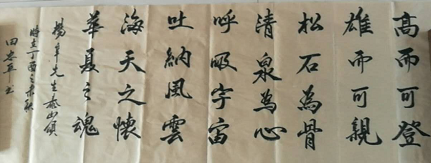 高而可登
雄而可親
松石為骨
清泉為心
呼吸宇宙
吐納風雲
海天之懷
華夏之魂
楊辛先生泰山頌
時在丁酉之
田